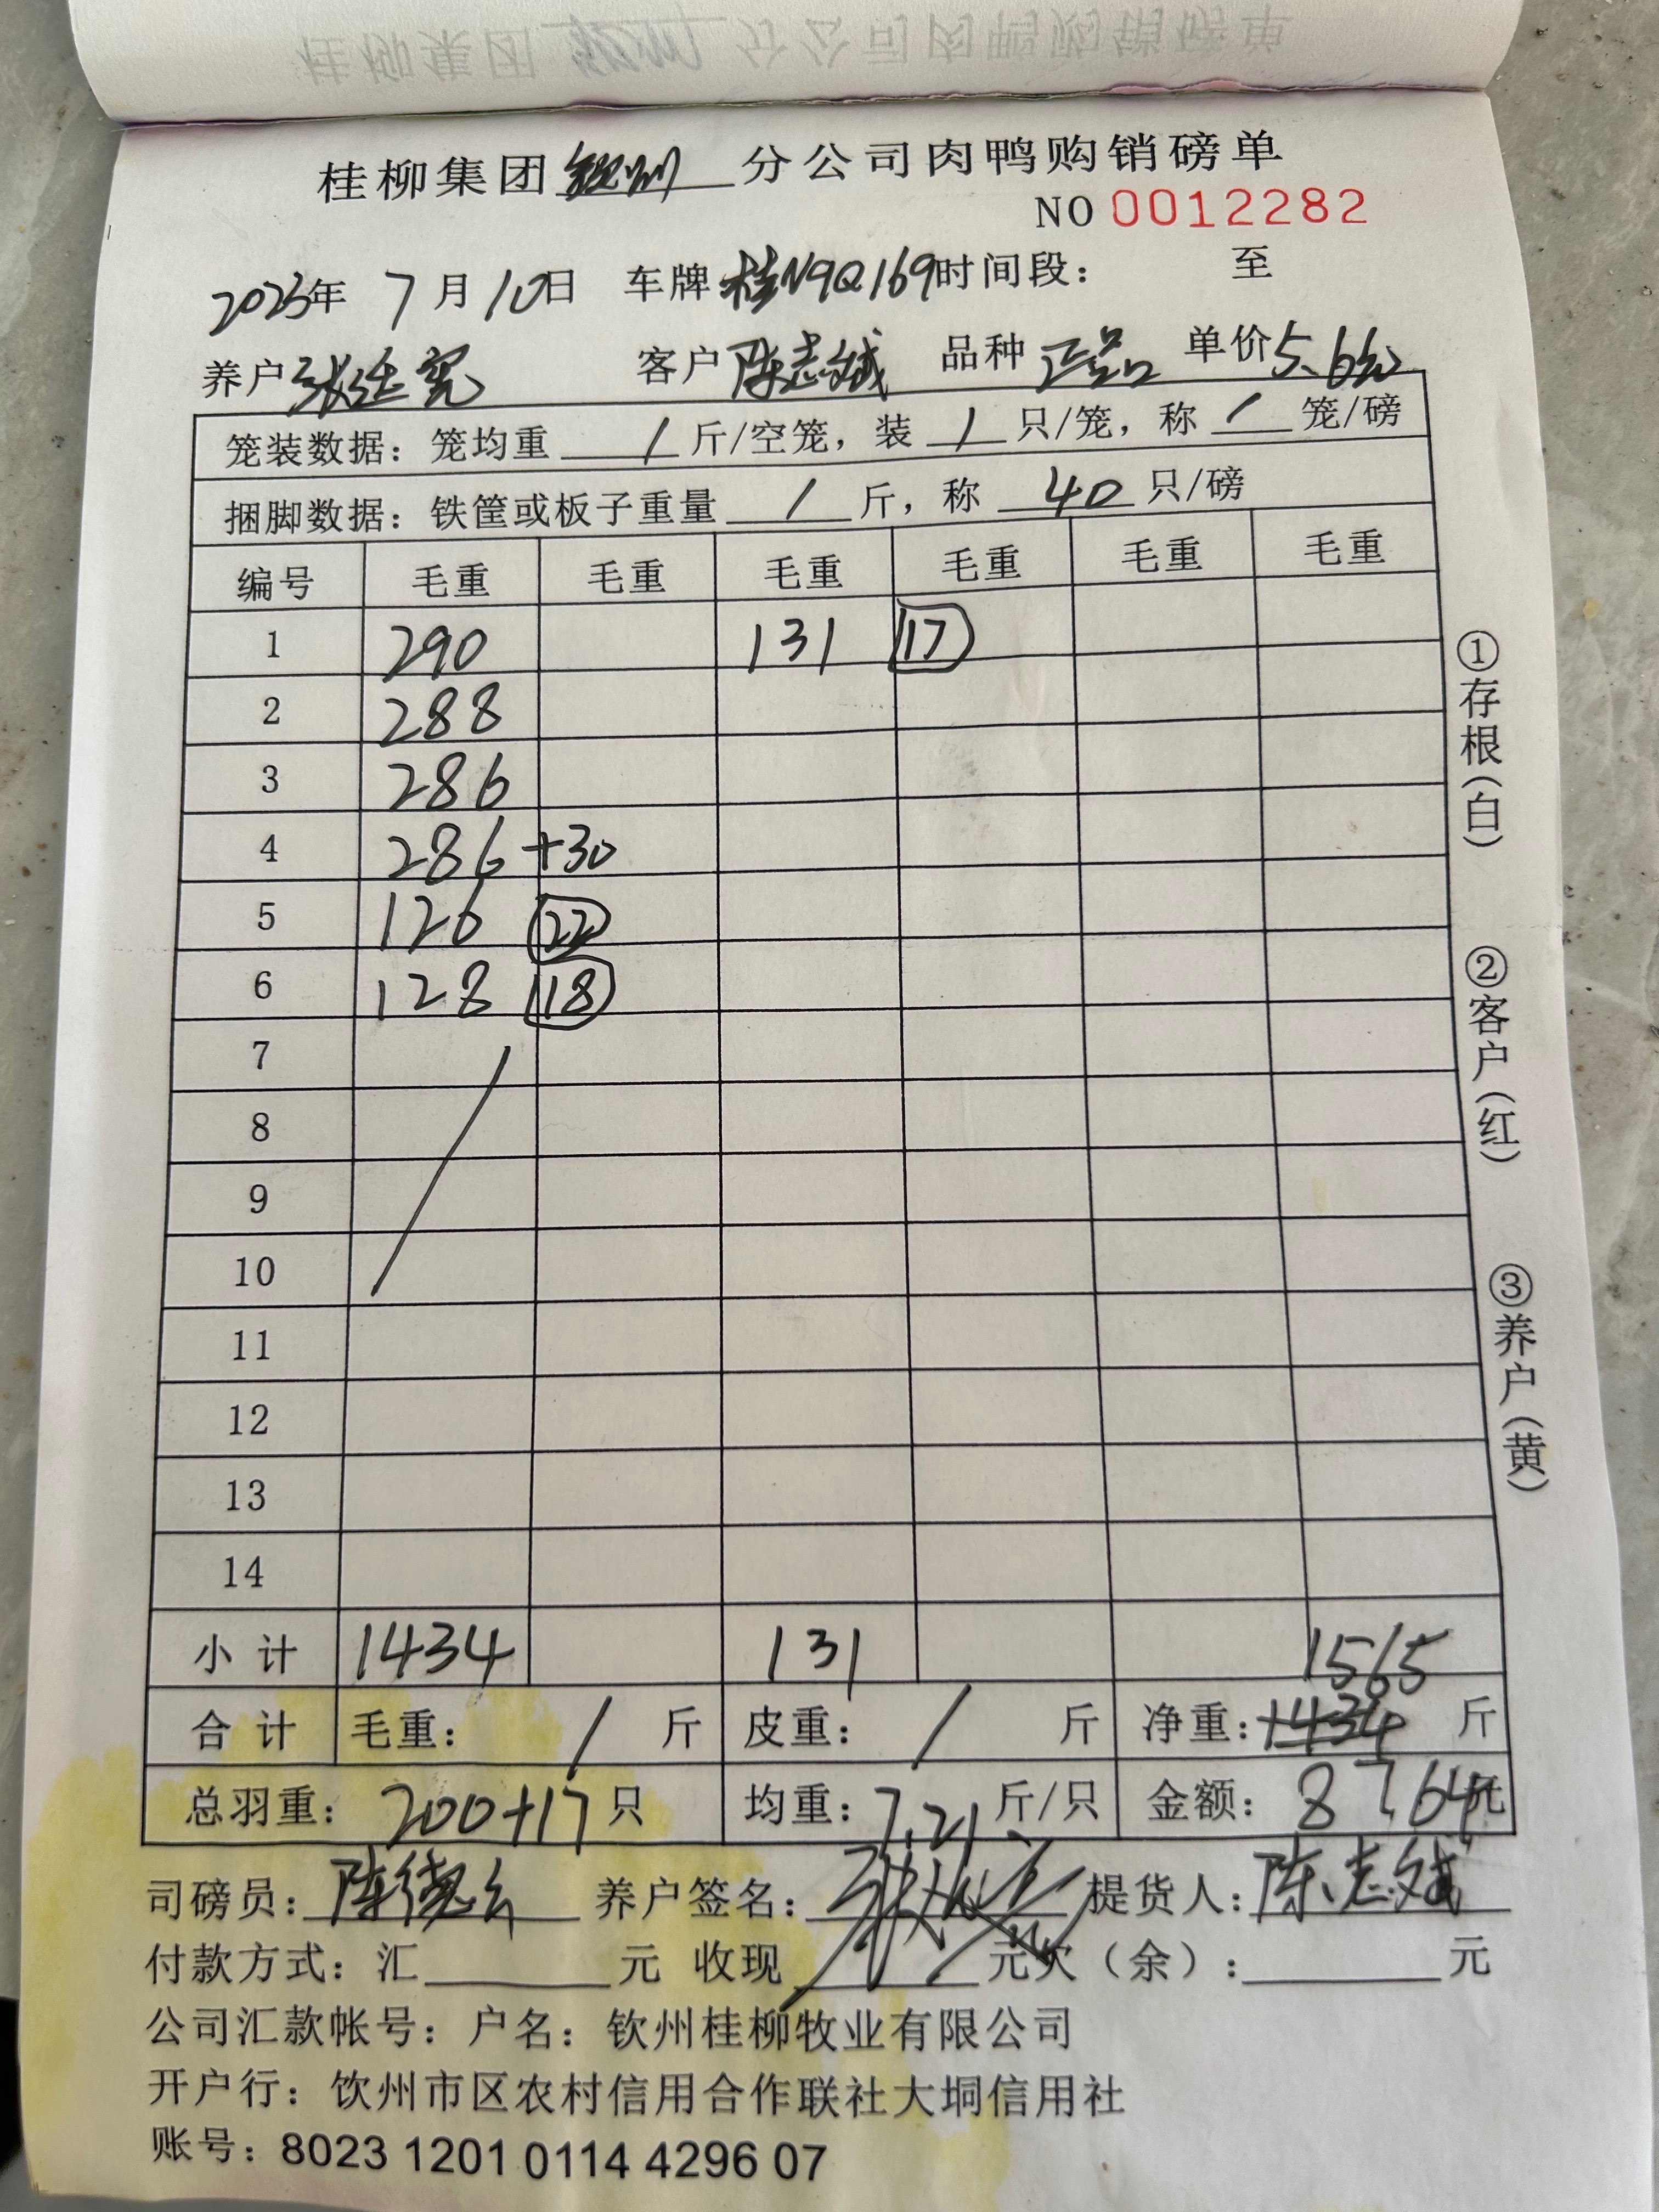 桂柳集团 钦州 分公司肉鸭购销磅单
NO 0012282
2025年 7月10日 车牌 桂N9Q169 时间段: 至
养户 客户 陈志斌 品种 正品 单价 5.6元
笼装数据: 笼均重 / 斤/空笼, 装 / 只/笼, 称 / 笼/磅
捆脚数据: 铁筐或板子重量 / 斤, 称 40 只/磅
编号 毛重 毛重 毛重 毛重 毛重 毛重
1 290 131 17
2 288
3 286
4 286 +30
5 126 22
6 128 18
7
8
9
10
11
12
13
14
小计 1434 131 1565
合计 毛重: / 斤 皮重: / 斤 净重: 1434 斤
总羽重: 200+17 只 均重: 7.21 斤/只 金额: 8764元
司磅员: 养户签名: 提货人: 陈志斌
付款方式: 汇 元 收现 元欠(余): 元
公司汇款帐号: 户名: 钦州桂柳牧业有限公司
开户行: 饮州市区农村信用合作联社大垌信用社
账号: 8023 1201 0114 4296 07
①存根(白)
②客户(红)
③养户(黄)